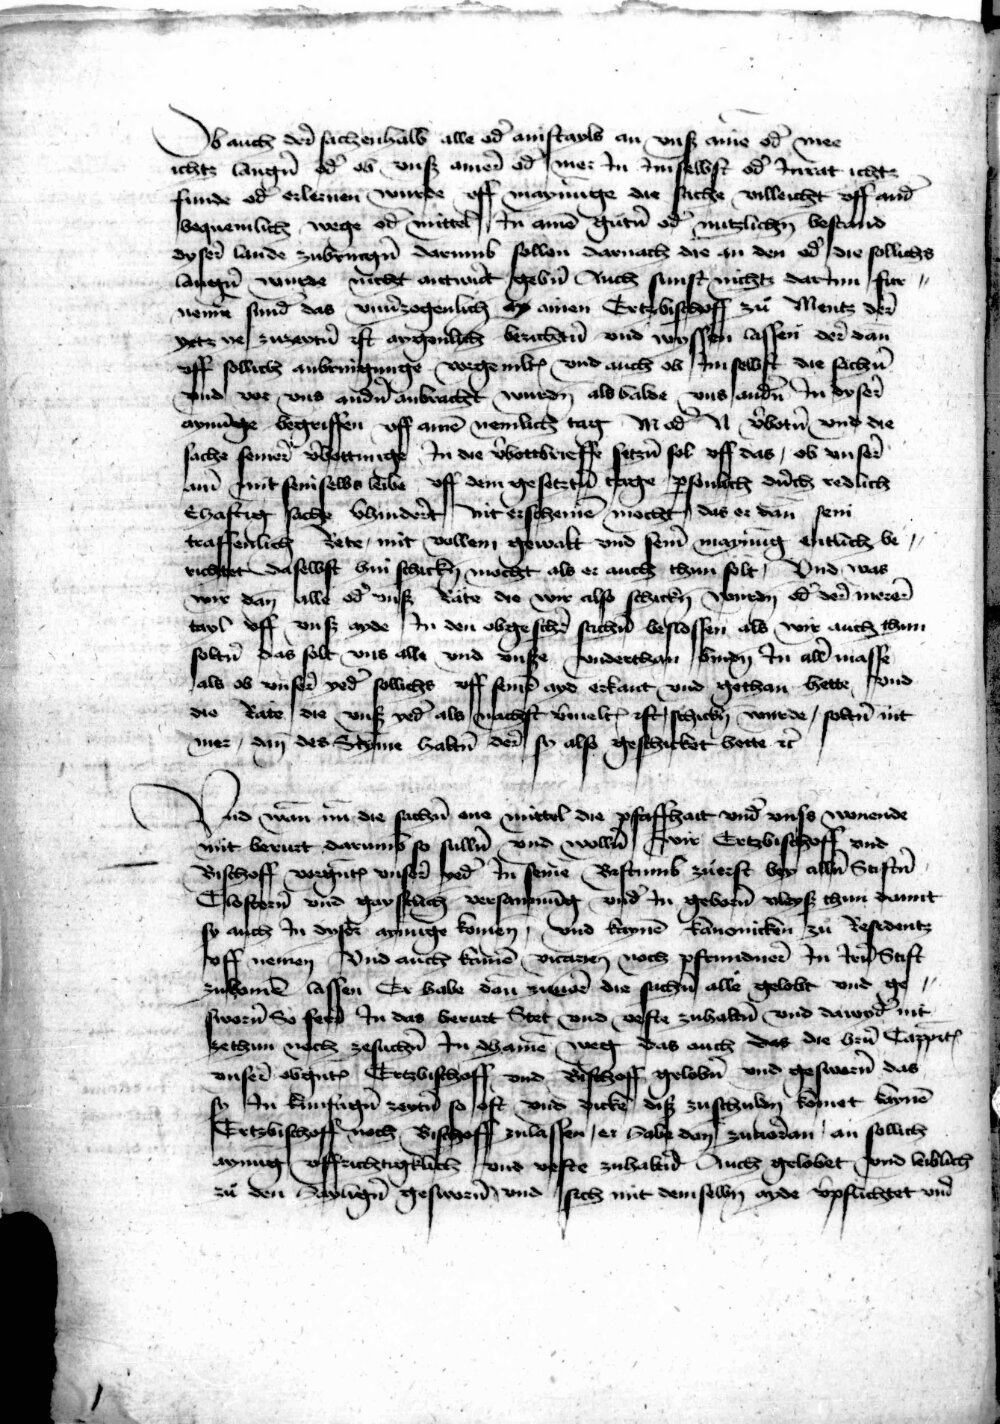 Ob auch der sachenhalb alle od' ainstayls an vnß aine od' mee
ichtz langen od' ob vnß ainer od' mer In Im selbst od' In rat ichtz
funde od' erlernen wurde vff maynunge die sache villeicht vff and'
bequemlich wege od' mittel In aine guten od' nutzlichen bestand
dyser lande zubringen darumb sollen darnach die an den od' die sollichs
langen wurde nicht antwurt geben Auch sunst nichtz darInn fur
neme sund' das vnuerzogenlich ainen Ertzbischoff zu Mentz der
yetz ye zuzeyten ist aygenlich berichten vnd wyssen lassen der dan
vff sollich anbringunge vorgemlt vnd auch ob Im selbst die sachen
vnd vor vns andern anbracht wurden als balde vns andern In dyser
aynunge begriffen vff aine nemlich tag M od' N v'boten vnd die
sache seiner v'bottunge In die v'bottbrieffe setzen sol vff das ob vnser
ain mit sein selbs leibe vff dem gesetzten tage p'sonlich durch redlich
Ehafftig sache v'hindert nit erscheine mocht das er dan sein
traffenlich Rete mit vollem gewalt vnd seiner maynung entlich be
richtet daselbst hin schicken mocht als er auch thun solt Vnd was
wir dan alle od' vnß Räte die wir also schicken wurden od' der merer
tayl vff vnß ayde In den obgeschr sachen beslossen als wir auch thun
solten das solt vns alle vnd vnße vnderthan binden In aller masse
als ob vnser yed' sollichs vff seine ayd erkant vnd gethan hette vnd
die Räte die vnß yed' als nachst v'melt ist schicken wurde solten nit
mer dan des Styme halten der sy also geschicket hette rc
Vnd wan nu die sachen one mittel die pfaffhait vnd' vnß wonende
mit berurt darumb so sullen vnd wollen wir Ertzbischoff vnd
Bischoff vorgnt vnser yed' In seine Bistumb zuerst bey allen Stiften
Clostern vnd gaystlich versamnung vnd' In geborn vleyß thun damit
sy auch In dyse aynunge komen vnd kayne kanonicken zu Residentz
vff nemen Vnd auch kaine vicarien noch pfrundner In Irn Stift
zukomen lassen Er habe dan zuuor die sachen alle gelobt vnd ge
sworn So fern In das berurt Stet vnd veste zuhalten vnd dawyd' nit
zethun noch zesuchen In dhaine weg Das auch das die hrn Cappitl
vnser obgnt Ertzbischoff vnd Bischoff geloben vnd gesworn das
sy In kunfftigen zeyten so oft vnd dicke diß zuschulden komet kayne
Ertzbischoff noch Bischoff zulassen er habe dan zuuoran an sollich
aynug vffrichtigklich vnd veste zuhalten Auch gelobet vnd leiblich
zu den Hayligen gesworn vnd sich mit demselben ayde v'pflichtet vnd